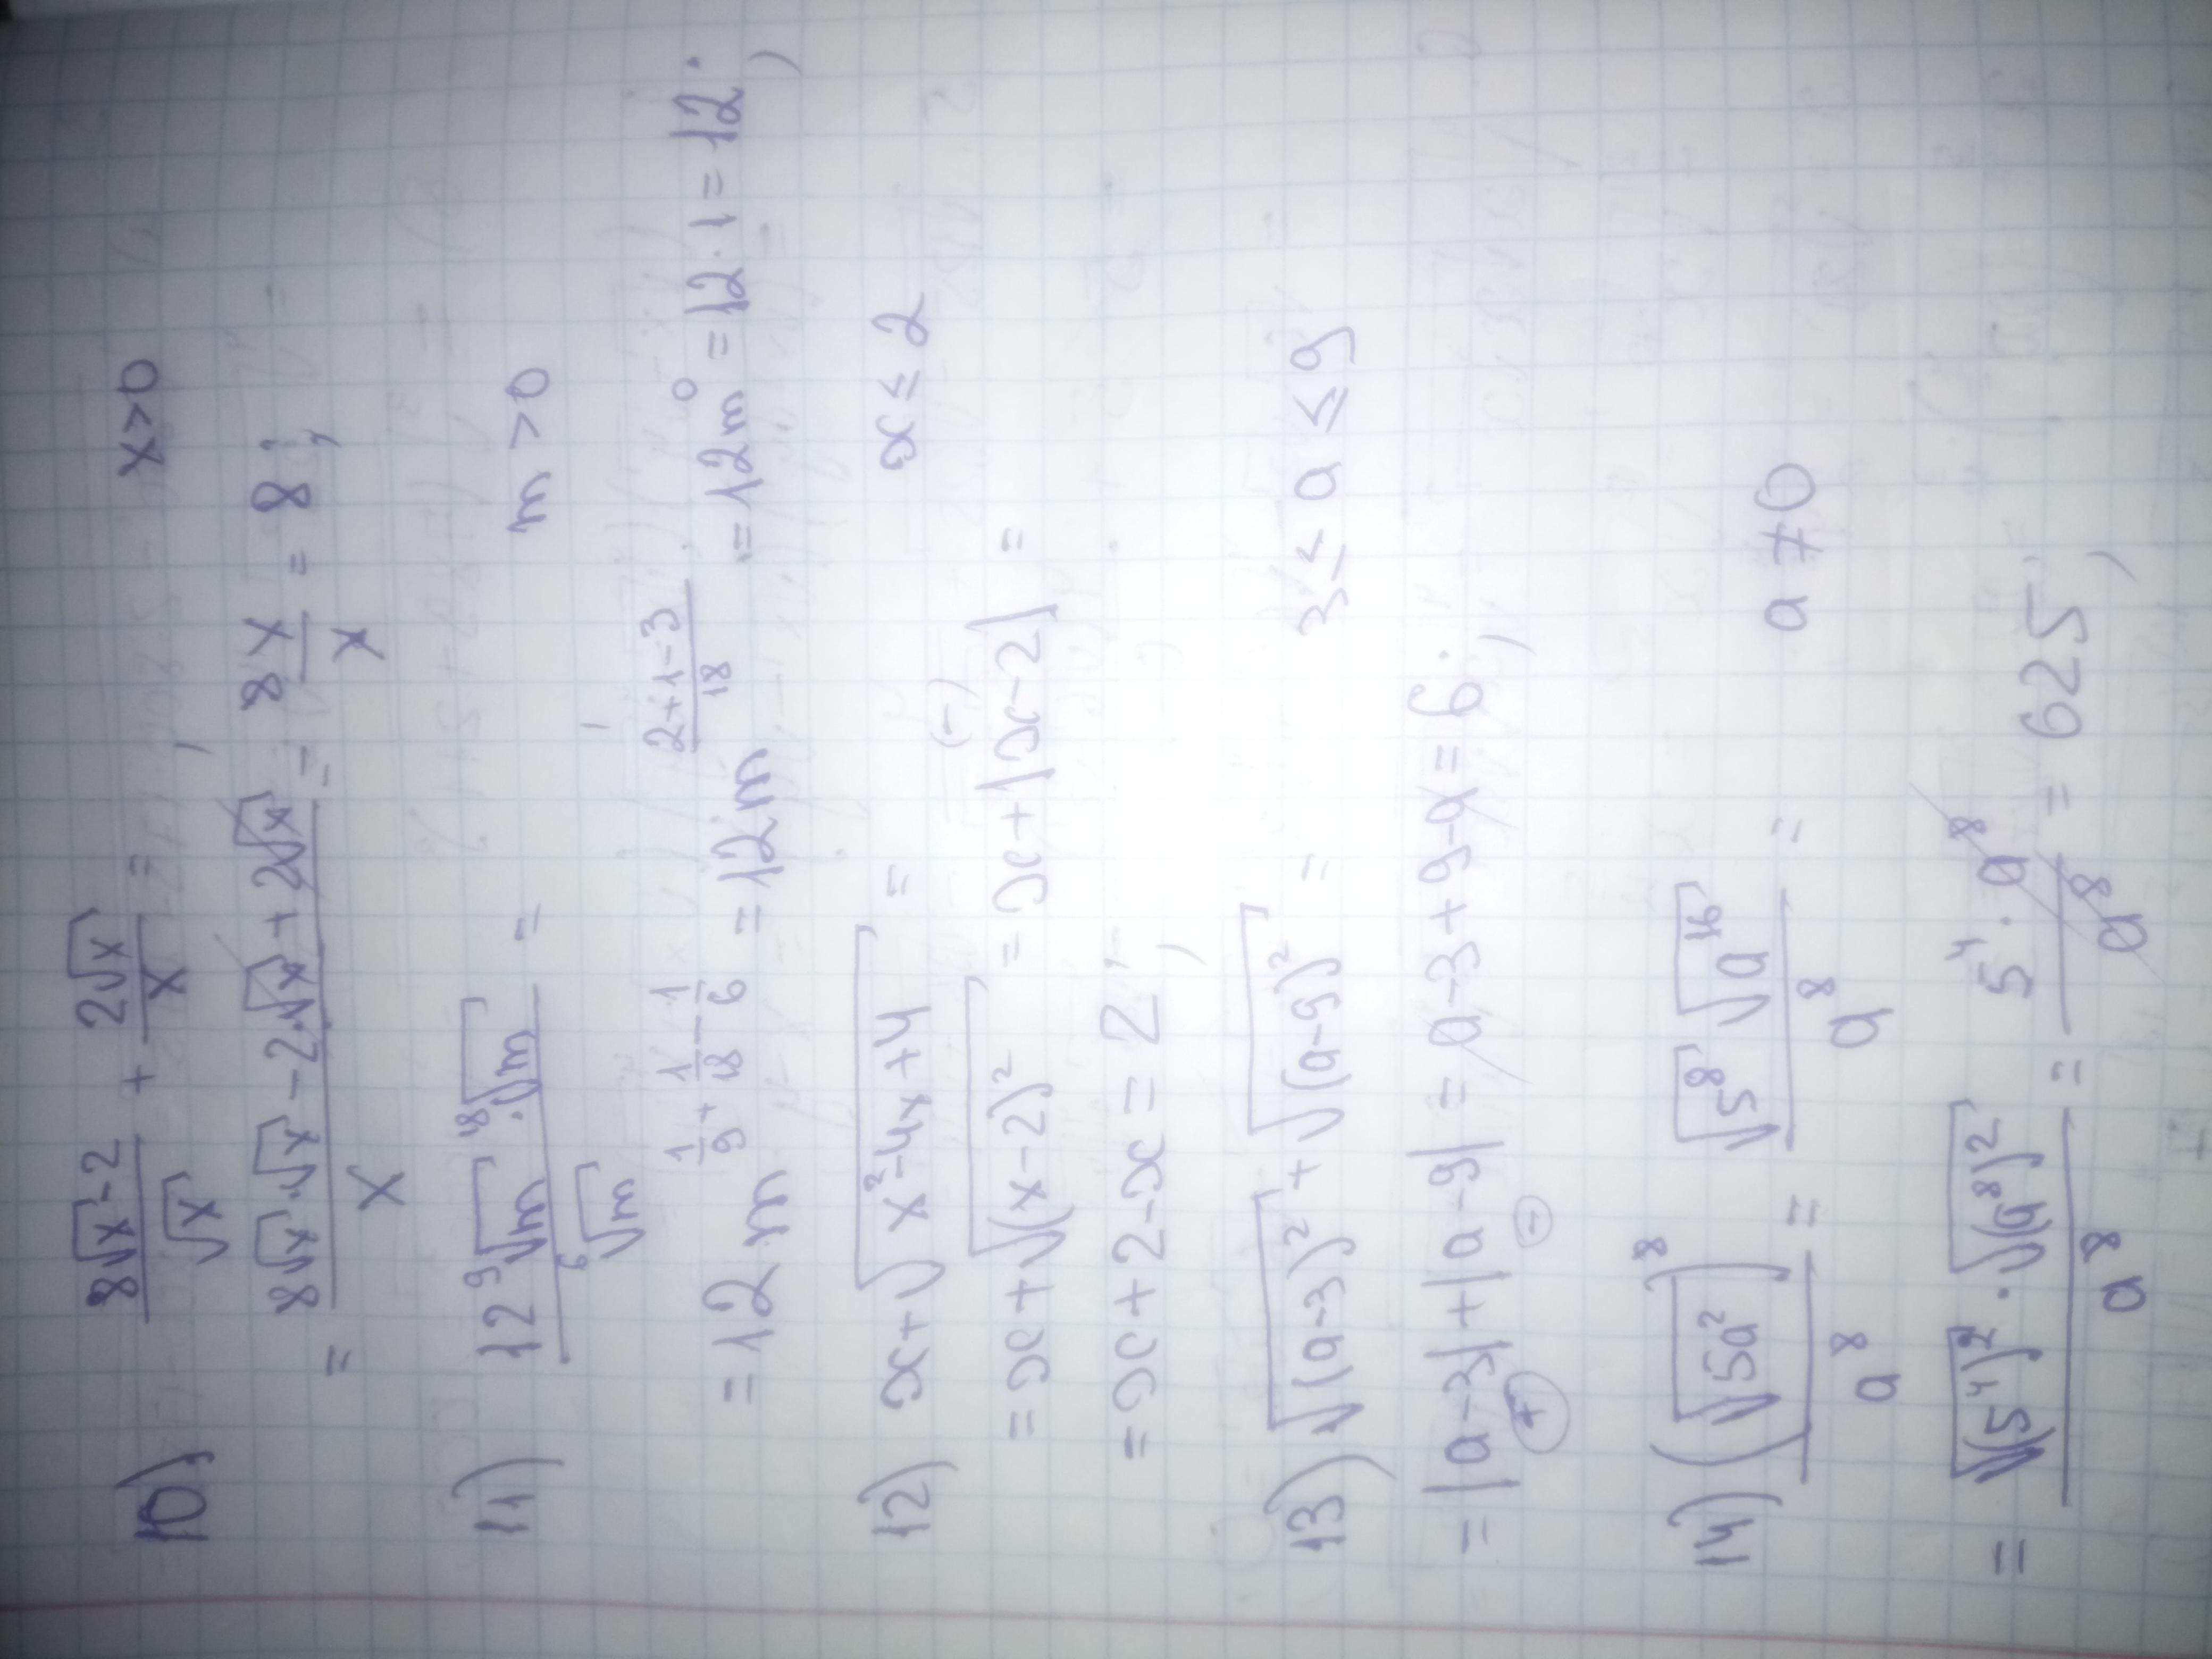 10) (8√x - 2)/√x + 2√x/x = , x>0
= (8√x·√x - 2·√x + 2√x)/x = 8x/x = 8;
11) (12 ⁹√m · ¹⁸√m)/⁶√m = m>0
= 12m^(1/9 + 1/18 - 1/6) = 12m^((2+1-3)/18) = 12m⁰ = 12·1 = 12;
12) x+√(x²-4x+4) = x≤2
(-)
= x+√(x-2)² = x+|x-2| =
= x+2-x = 2;
13) √(a-3)² + √(a-9)² = 3≤a≤9
= |a-3|+|a-9| = a-3+9-a = 6;
+ -
14) (√5a²)⁸/a⁸ = √5⁸ √a¹⁶/a⁸ = a≠0
= √(5⁴)² · √(a⁸)²/a⁸ = 5⁴·a⁸/a⁸ = 625;